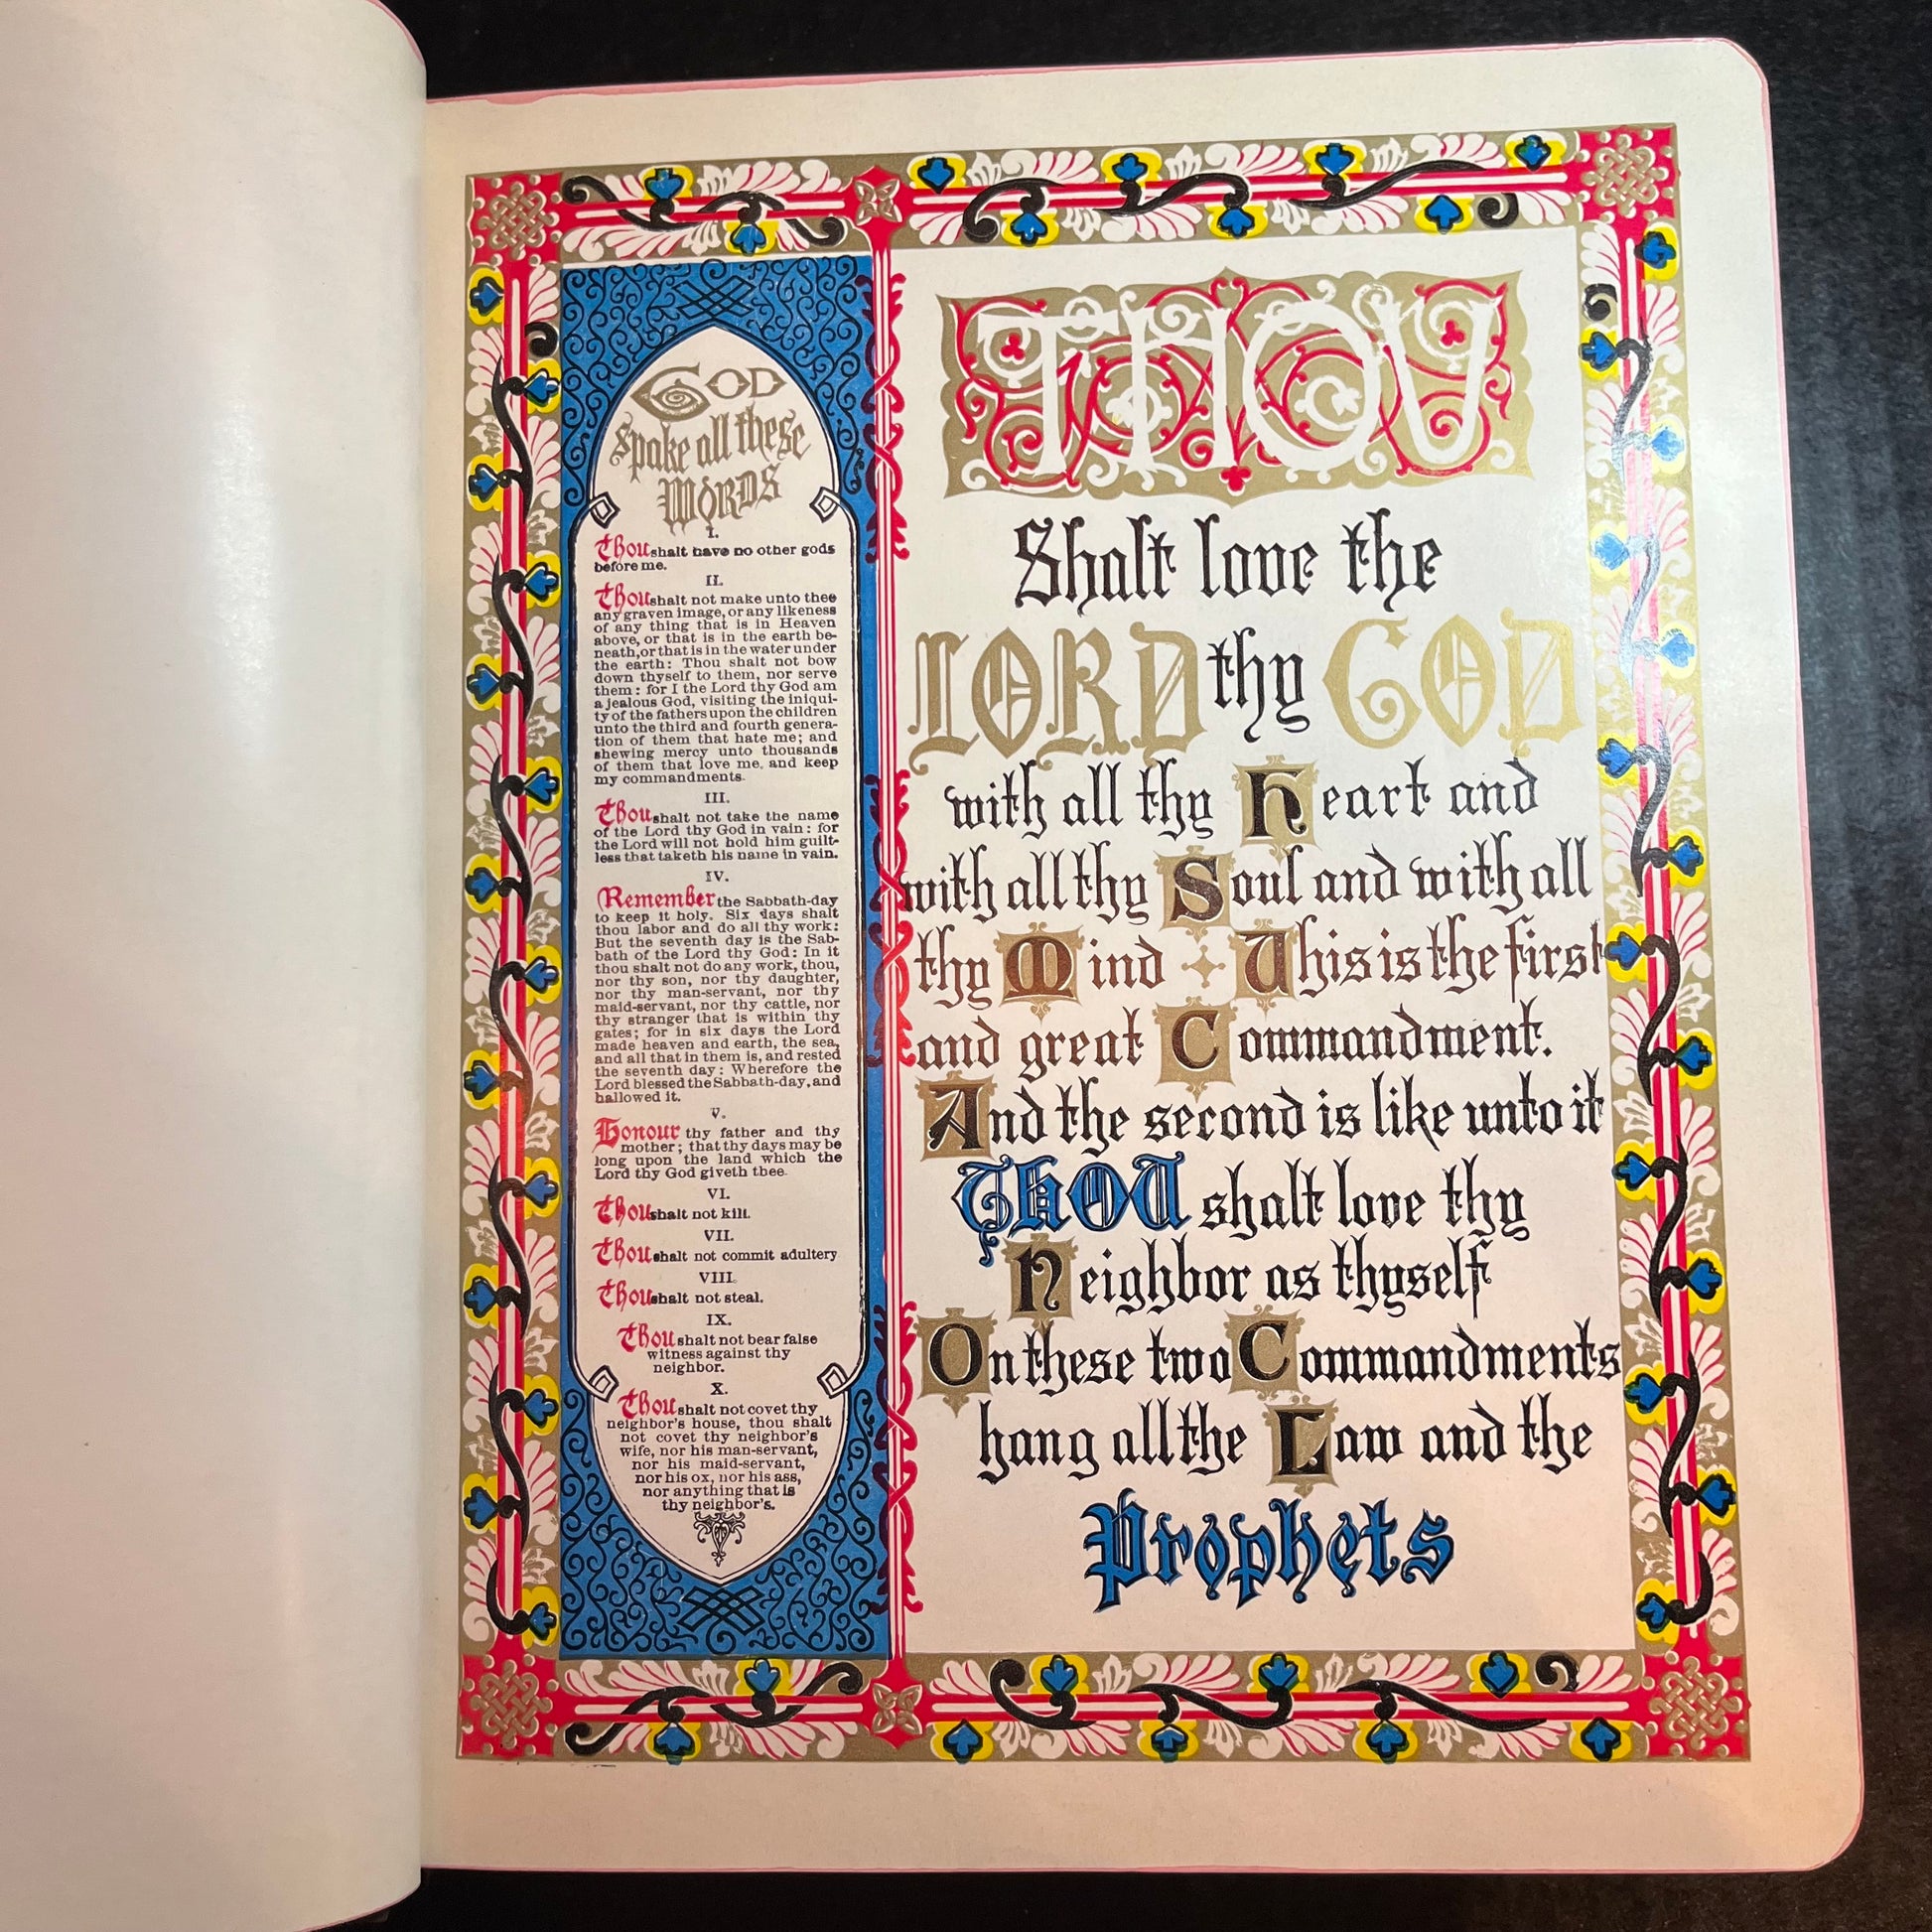 GOD
spake all these
WORDS
I.
Thou shalt have no other gods
before me.
II.
Thou shalt not make unto thee
any graven image, or any likeness
of any thing that is in Heaven
above, or that is in the earth be-
neath, or that is in the water under
the earth: Thou shalt not bow
down thyself to them, nor serve
them: for I the Lord thy God am
a jealous God, visiting the iniqui-
ty of the fathers upon the children
unto the third and fourth genera-
tion of them that hate me; and
shewing mercy unto thousands
of them that love me, and keep
my commandments.
III.
Thou shalt not take the name
of the Lord thy God in vain: for
the Lord will not hold him guilt-
less that taketh his name in vain.
IV.
Remember the Sabbath-day
to keep it holy. Six days shalt
thou labor and do all thy work:
But the seventh day is the Sab-
bath of the Lord thy God: In it
thou shalt not do any work, thou,
nor thy son, nor thy daughter,
nor thy man-servant, nor thy
maid-servant, nor thy cattle, nor
thy stranger that is within thy
gates; for in six days the Lord
made heaven and earth, the sea,
and all that in them is, and rested
the seventh day: Wherefore the
Lord blessed the Sabbath-day, and
hallowed it.
V.
Honour thy father and thy
mother; that thy days may be
long upon the land which the
Lord thy God giveth thee.
VI.
Thou shalt not kill.
VII.
Thou shalt not commit adultery
VIII.
Thou shalt not steal.
IX.
Thou shalt not bear false
witness against thy
neighbor.
X.
Thou shalt not covet thy
neighbor's house, thou shalt
not covet thy neighbor's
wife, nor his man-servant,
nor his maid-servant,
nor his ox, nor his ass,
nor anything that is
thy neighbor's.
THOU
Shalt love the
LORD thy GOD
with all thy Heart and
with all thy Soul and with all
thy Mind This is the first
and great Commandment.
And the second is like unto it
THOU shalt love thy
Neighbor as thyself
On these two Commandments
hang all the Law and the
Prophets